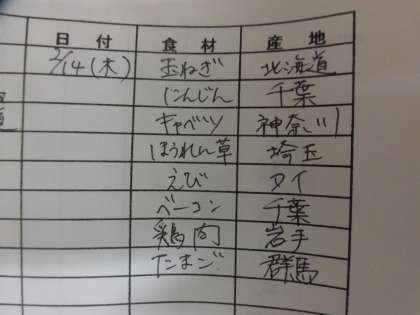 日付 食材 産地
2/14(木) 玉ねぎ 北海道
にんじん 千葉
キャベツ 神奈川
ほうれん草 埼玉
えび タイ
ベーコン 千葉
鶏肉 岩手
たまご 群馬